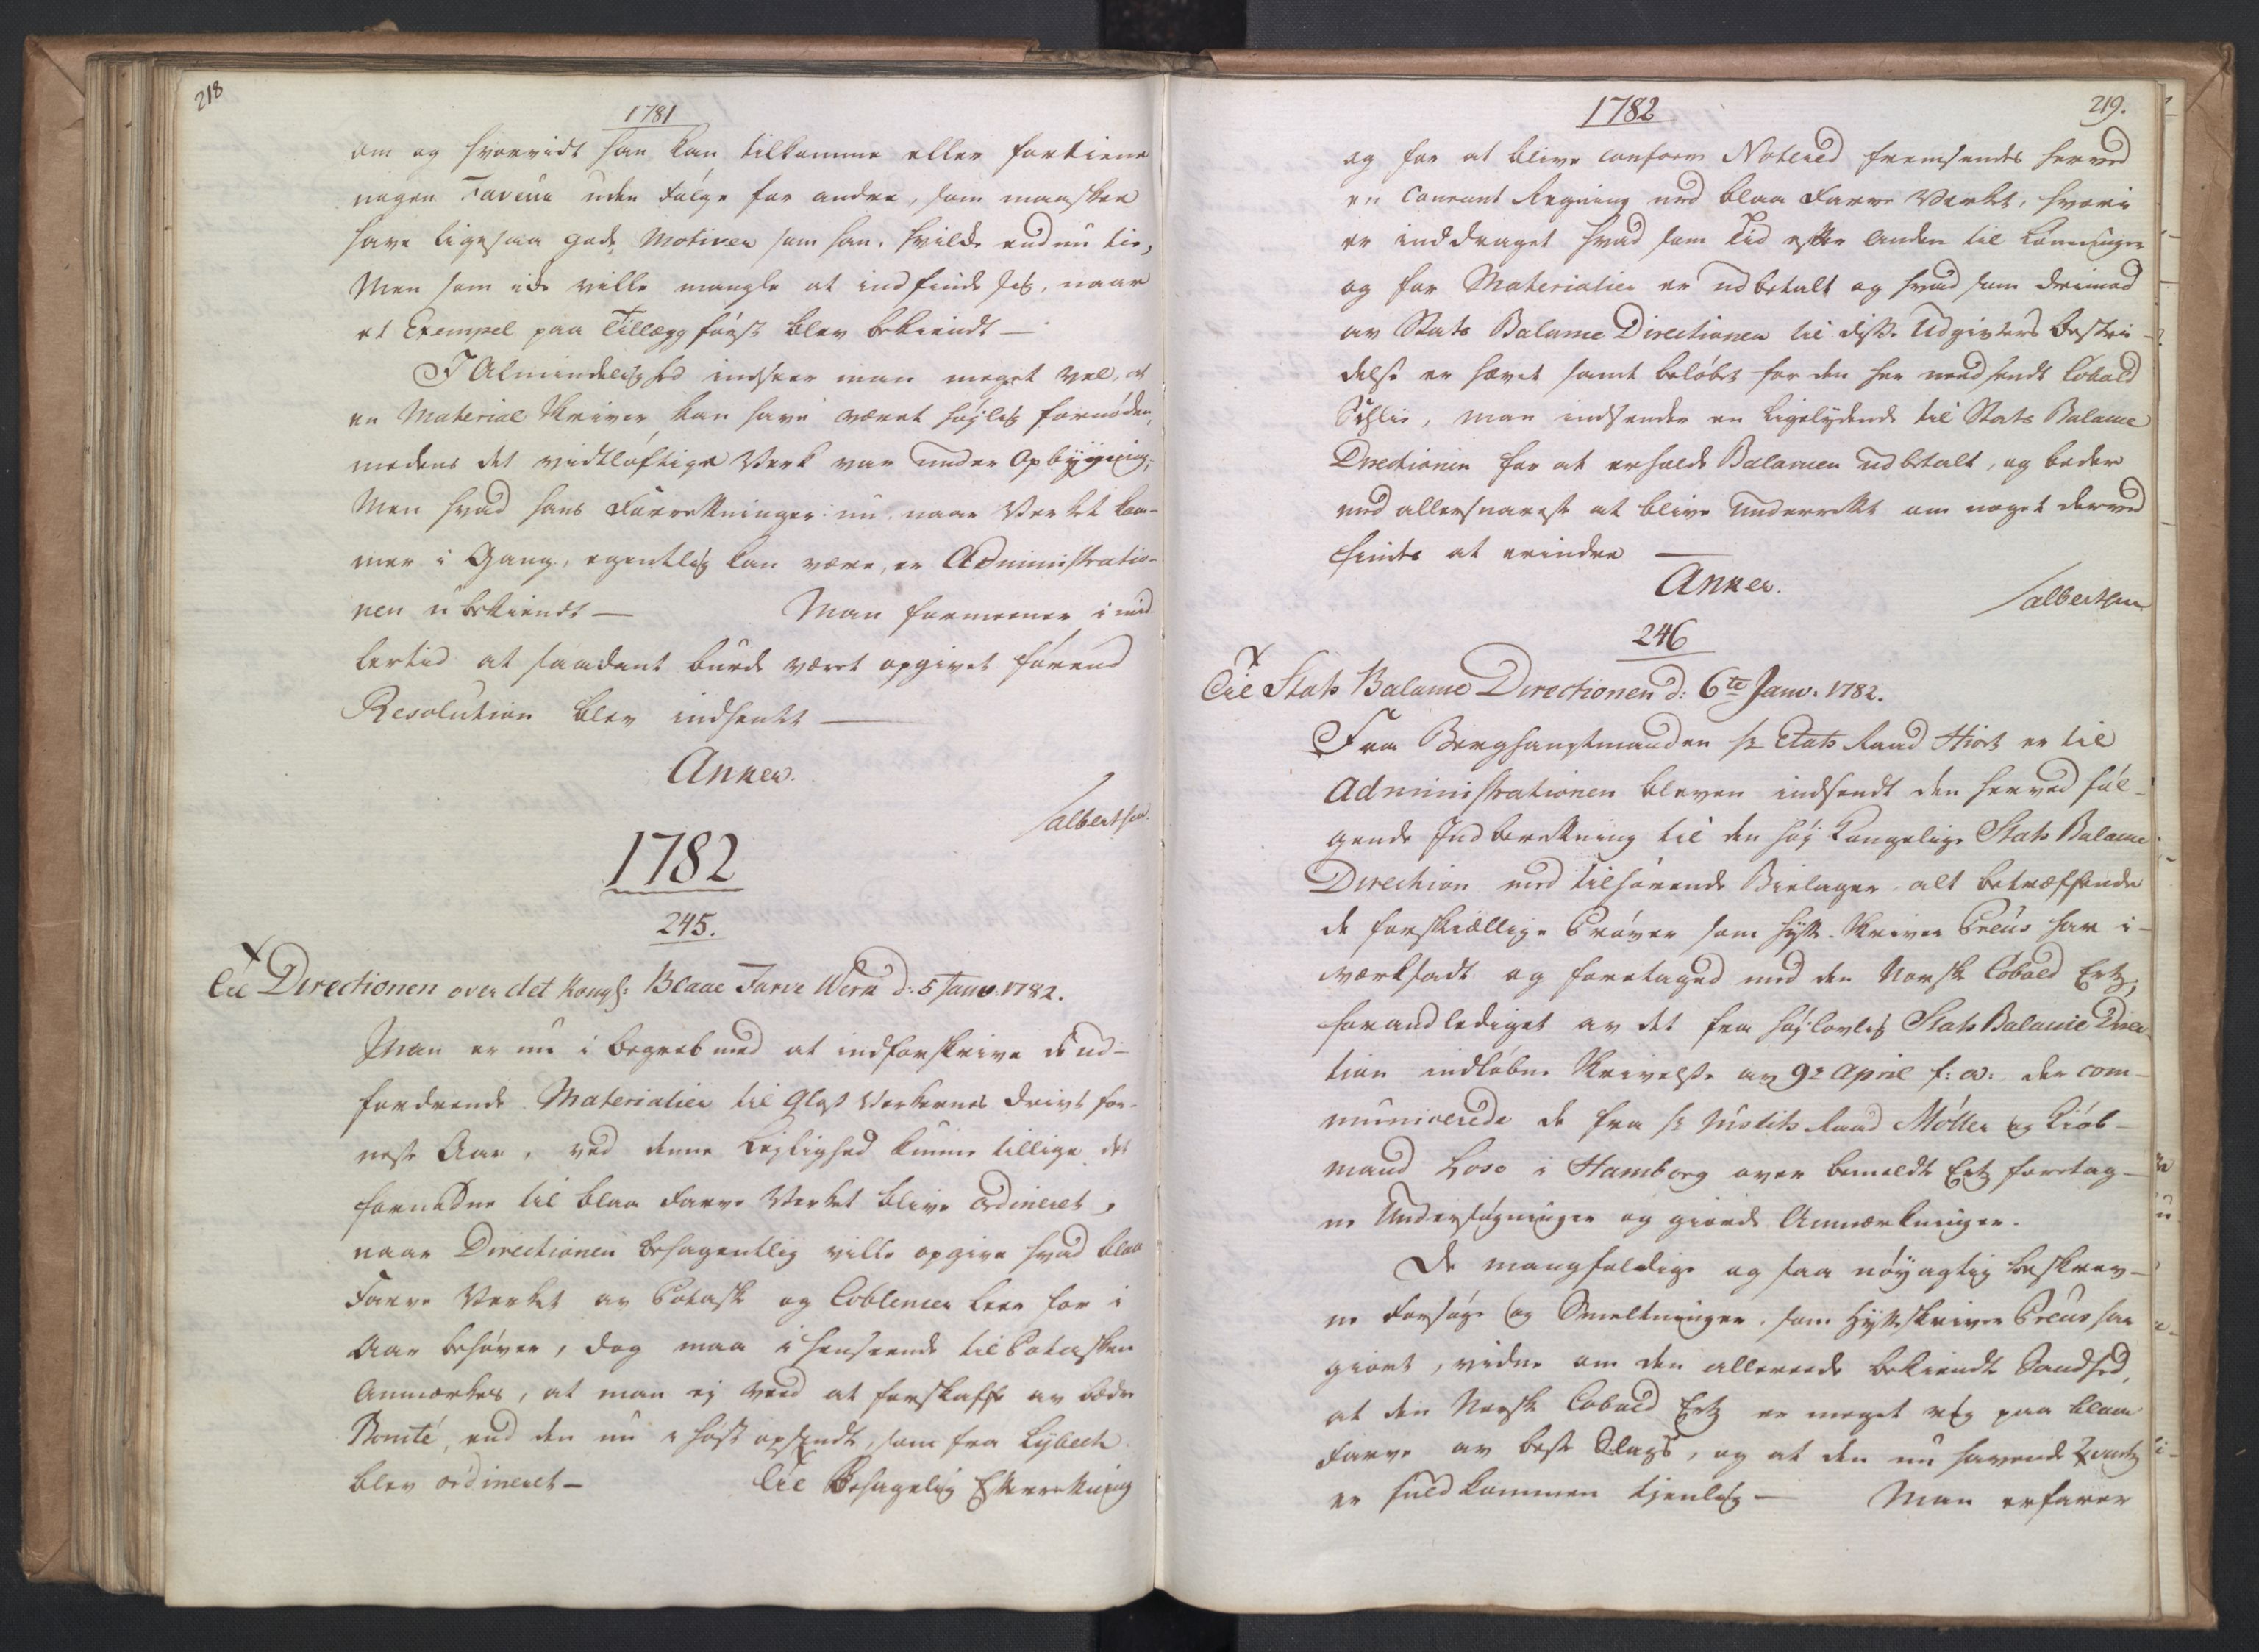 218
1781
om og hvorvidt han kan tilkomme eller fortiene
nogen Faveur uden Følge for andre, som maaskee
have ligesaa gode Motiver som han, hvilke endnu tie,
Men som icke ville mangle at indfinde sig, naar
et Exempel paa Tillæg først blev bekiendt —
I Almindelighed indseer man meget vel, at
en Material Skriver kan have været høylig fornøden,
medens det vidtløftige Verk var under Opbygning;
Men hvad hans Forretninger nu naar Verket kom-
mer i Gang, egentlig kan være, er Administratio-
nen ubekiendt — Man formeener imid-
lertid at saadant burde været opgivet førend
Resolution blev indhentet —
Anker.
Talbertsen.
1782
245.
Til Directionen over det Kongl: Blaae Farve Werk d: 5 Janv. 1782.
Man er nu i begreb med at indforskrive de ud-
fordrende Materialier til Glas Verkernes Drivt for
neste Aar, ved denne Leylighed kunne tillige det
fornødne til blaa Farve Verket blive ordineret,
naar Directionen behagentlig ville opgive hvad blaa
Farve Verket av Potaske og Coblencer Leer for i
Aar behøver, dog maa i henseende til Potasken
Anmærkes, at man ej veed at forskaffe av bedre
Bonté, end den nu i høst opsendt, som fra Lybech
blev ordineret — Til Behagelig Efterretning
1782
219.
og for at blive conform Notered fremsendes herved
en Courant Regning med blaa Farve Verket, hvori
er inddraget hvad som Tid efter anden til Lønninger
og for Materialier er udbetalt og hvad som derimod
av Stats Balance Directionen til disse Udgivters Bestri-
delse er hævet samt beløbet for den her nedsendte Cobald
Schlig, man indsender en ligelydende til Stats Balance
Directionen for at erholde Balancen udbetalt, og beder
med allersnareste at blive Underrettet om noget derved
findes at erindre —
Anker.
Talbertsen
246
Til Stats Balance Directionen d: 6te Janv. 1782.
Fra Berghauptmanden Hr Etats Raad Hiort er til
Administrationen bleven indsendt den herved føl-
gende Indberetning til den høy Kongelige Stats Balance
Direction med tilhørende Bielager alt betræffende
de forskiællige Prøver som Hytte-Skriver Preus har i-
værksadt og foretaged med den Norske Cobald Ertz,
foranlediget av det fra høylovlig Stats Balance Direc-
tion indløbne Skrivelse av 9de April f: A: der com-
municerede de fra Hr Justits Raad Möller og Kiøb-
mand Lose i Hamborg over bemeldte Ertz foretag-
ne Undersøgninger og giorde Anmærkninger.
De mangfoldige og saa nøyagtig beskrev-
ne Forsøge og Smeltninger, som Hytteskriver Preus har
giort, vidne om den allereede bekiendte Sandhed,
at den Norske Cobald Ertz er meget riig paa blaa
Farve av beste Slags, og at den nu havende Qvartz
er fuldkommen tjenlig — Man erfarer